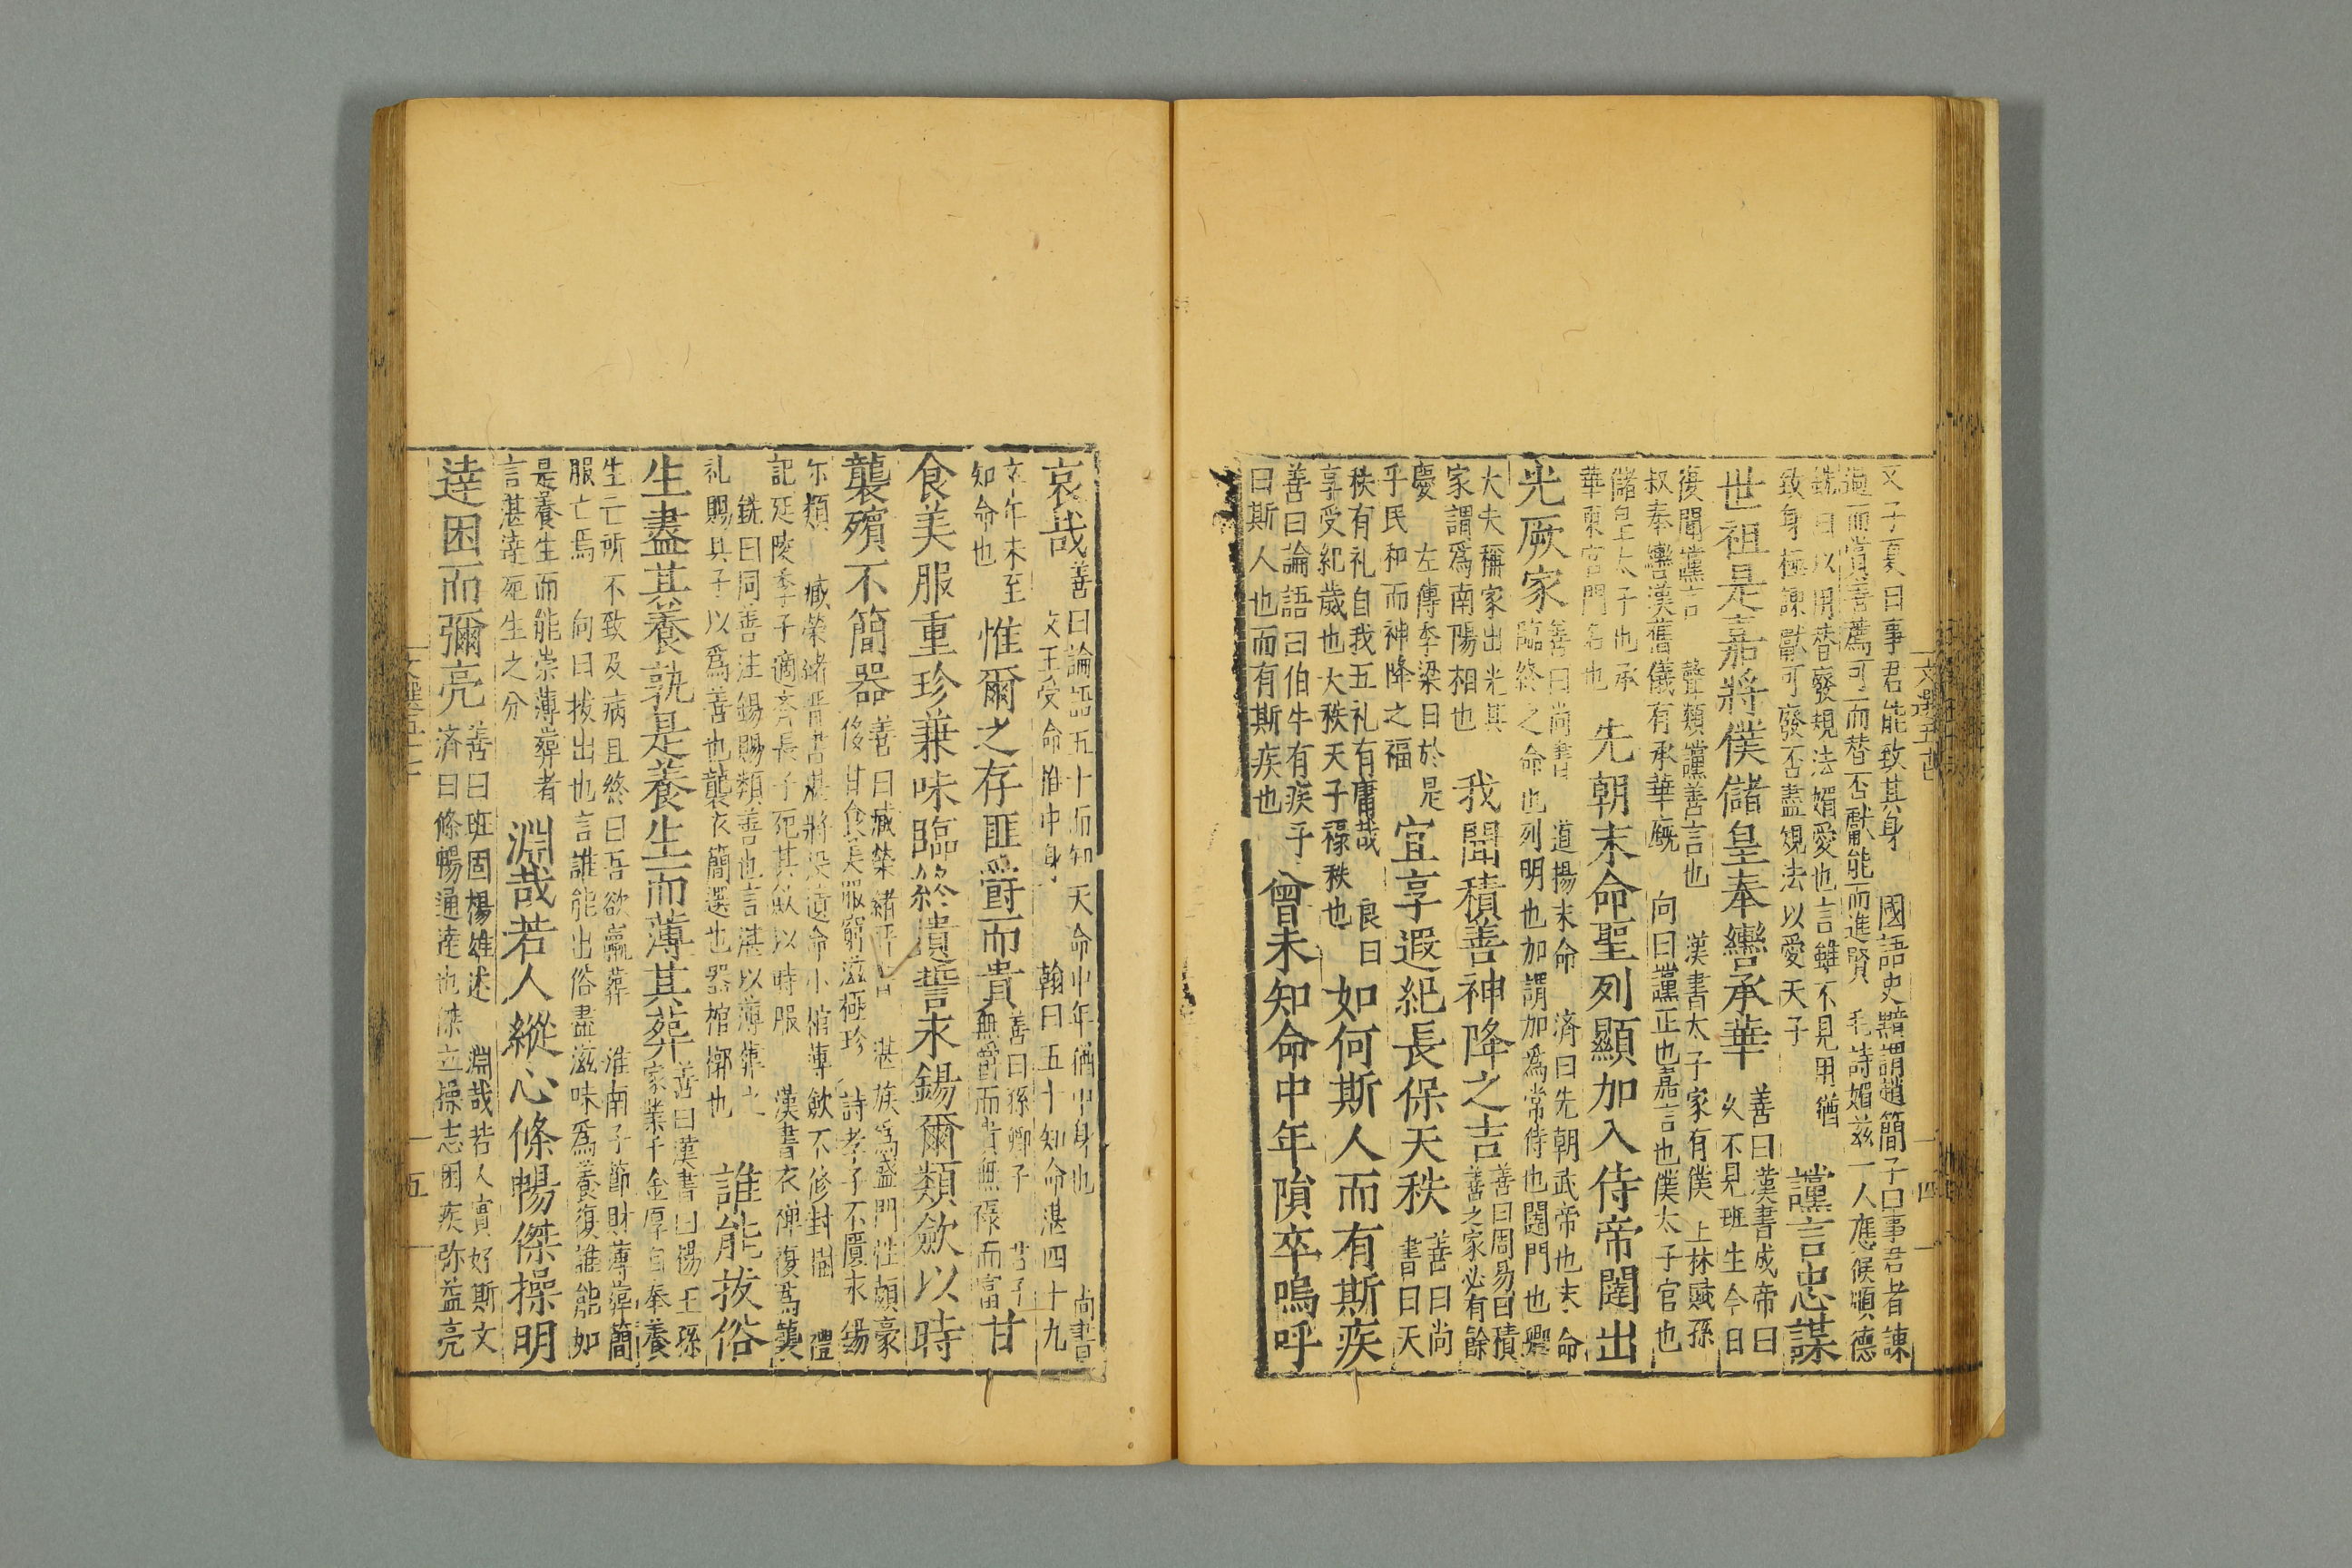 文子夏曰事君能致其身 國語史黯謂趙簡子曰事君者諫
過而賞善薦可而替否獻能而進賢 毛詩媚兹一人應候順德
銑曰以用替廢規法媚愛也言雖不見用猶
致身極諫獻可廢否盡規法以愛天子
讜言忠謀
世祖是嘉將僕儲皇奉轡承華
善曰漢書成帝曰
久不見班生今日
復聞讜言 聲類讜善言也 漢書太子家有僕 上林賦孫
叔奉轡漢舊儀有承華廐 向曰讜正也嘉言也僕太子官也
儲皇太子也承
華東宮門名也
先朝末命聖列顯加入侍帝闥出
光厥家
善曰尚書 道揚末命 濟曰先朝武帝也末命
臨終之命也列明也加謂加爲常侍也闥門也卿
大夫稱家出光其
家謂爲南陽相也
我聞積善神降之吉
善曰周易曰積
善之家必有餘
慶 左傳季梁曰於是
乎民和而神降之福
宜享遐紀長保天秩
善曰尚
書曰天
秩有礼自我五礼有庸哉 良曰
享受紀歲也大秩天子祿秩也
如何斯人而有斯疾
善曰論語曰伯牛有疾乎
曰斯人也而有斯疾也
曾未知命中年隕卒嗚呼
文選五十七
四
哀哉
善曰論語五十而知天命中年猶中身也 尚書
文王受命惟中身 翰曰五十知命湛四十九
卒年未至
知命也
惟爾之存匪爵而貴
善曰孫卿子 君子
無爵而貴無祿而富
甘
食美服重珍兼味臨終遺誓永錫爾類斂以時
襲殯不簡器
善曰臧榮緒晉書 湛族爲盛門性頗豪
侈甘食美服窮滋極珍 詩孝子不匱永錫
尓類 臧榮緒晉書湛將没遺命小棺薄斂不修封樹 禮
記延陵季子適齊長子死其斂以時服 漢書衣襌復爲襲
銑曰同善注錫賜類善也言湛以薄葬之
礼賜其子以爲善也襲衣簡選也器棺槨也
誰能拔俗
生盡其養孰是養生而薄其葬
善曰漢書曰楊王孫
家業千金厚自奉養
生亡所不致及病且終曰吾欲臝葬 淮南子節財薄葬簡
服亡焉 向曰拔出也言誰能出俗盡滋味爲養復誰能如
是養生而能崇薄葬者
言湛達死生之分
淵哉若人縱心條暢傑操明
達困而彌亮
善曰班固楊雄述 淵哉若人實好斯文
濟曰條暢通達也傑立操志困疾弥益亮
文選五十七
五